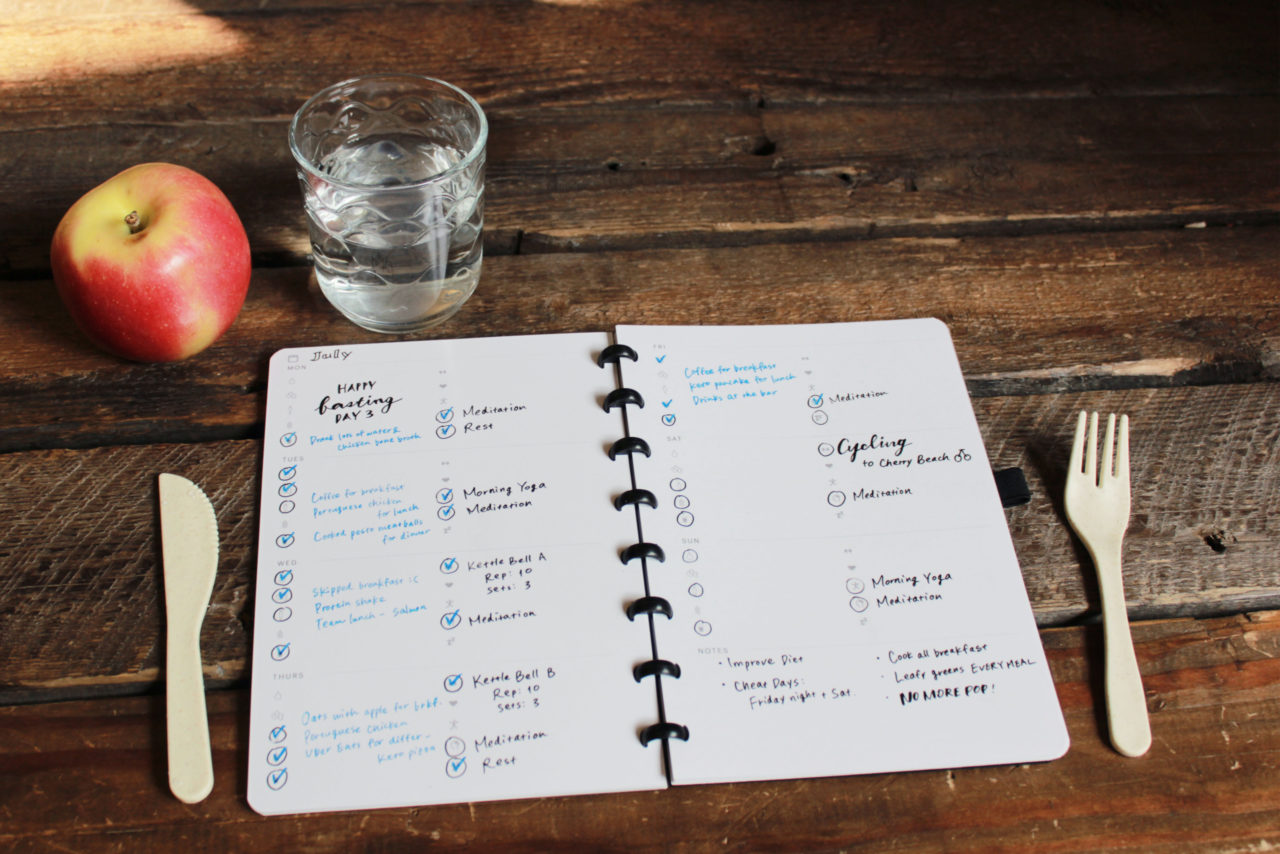 Daily
MON
HAPPY
fasting
DAY 3
Drank lots of water &
chicken bone broth
Meditation
Rest
TUES
Coffee for breakfast
Portuguese chicken
for lunch
Cooked pesto meatballs
for dinner
Morning Yoga
Meditation
WED
Skipped breakfast :(
Protein shake
Team lunch - Salmon
Kettle Bell A
Rep: 10
sets: 3
Meditation
THURS
Oats with apple for brkf.
Portuguese Chicken
Uber Eats for differ -
Keto pizza
Kettle Bell B
Rep: 10
sets: 3
Meditation
Rest
FRI
Coffee for breakfast
Keto pancake for lunch
Drinks at the bar
Meditation
SAT
Cycling
to Cherry Beach
Meditation
SUN
Morning Yoga
Meditation
NOTES
• Improve Diet
• Cheat Days:
Friday night + Sat.
• Cook all breakfast
• Leafy greens EVERY MEAL
• NO MORE POP!